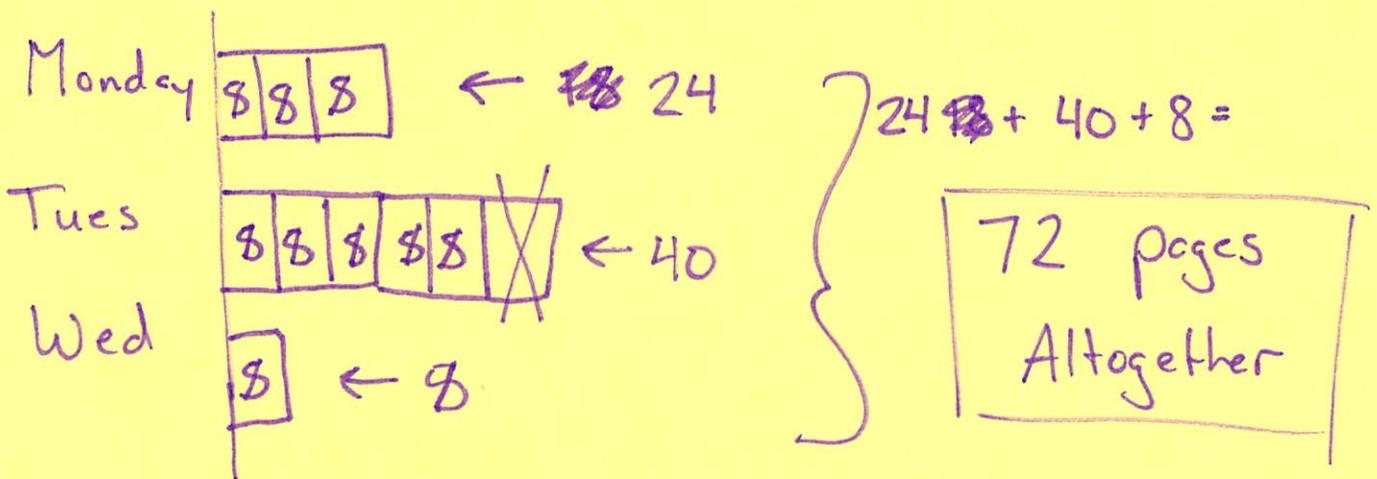 Monday 8 8 8 ← 24
Tues 8 8 8 8 8 ← 40
Wed 8 ← 8
24 + 40 + 8 =
72 pages
Altogether